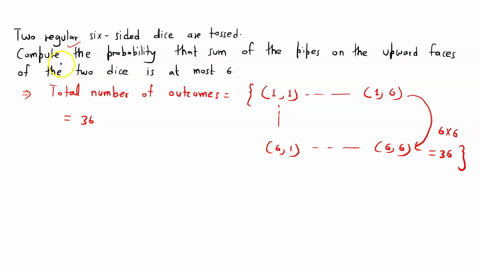 Two regular six-sided dice are tossed.
Compute the probability that sum of the pipes on the upward faces
of the two dice is at most 6.
⇒ Total number of outcomes = { (1,1) -- --- (1,6)
= 36
6x6
(6,1) -- --- (6,6) = 36 }